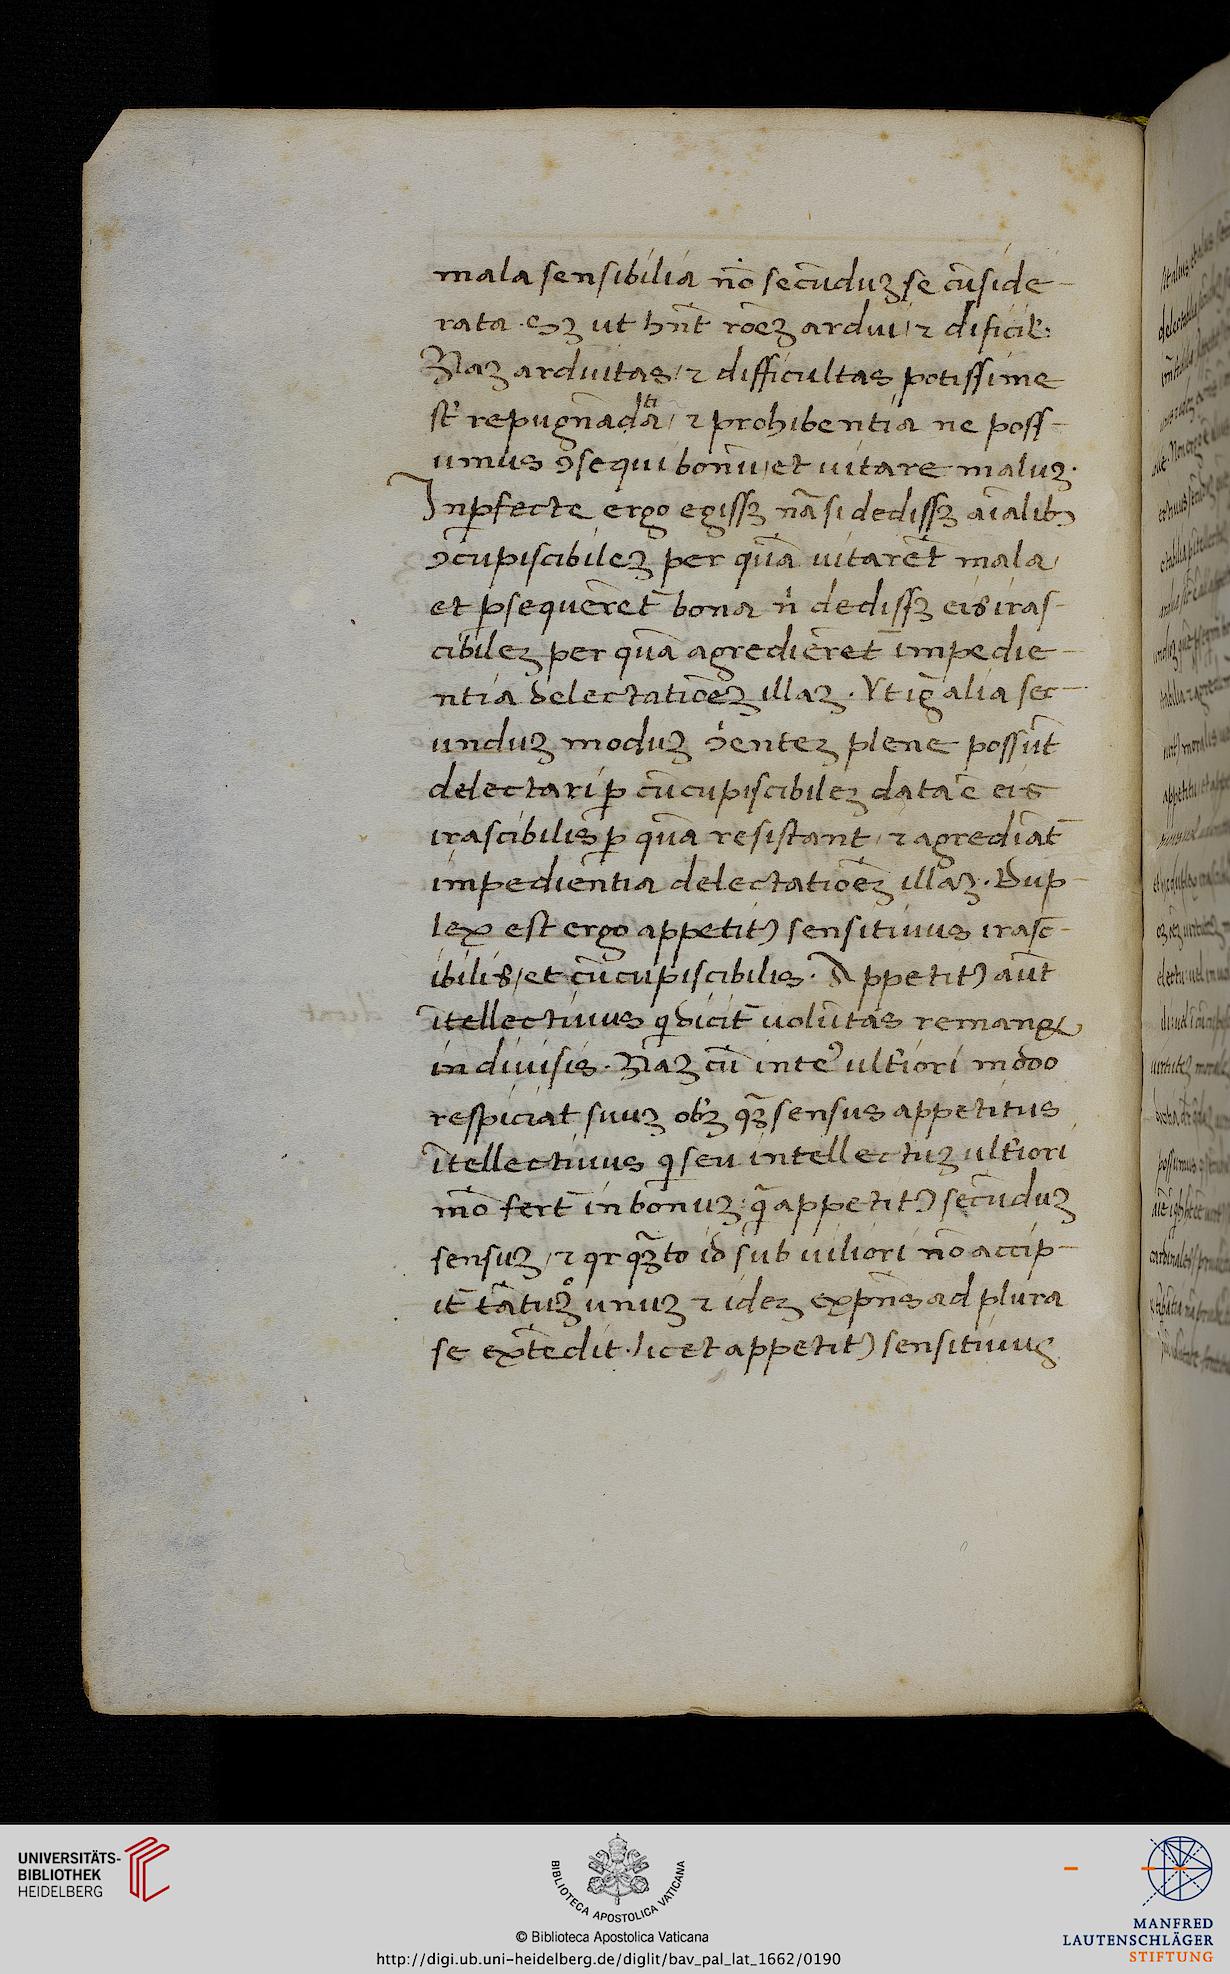 mala sensibilia nō secūduꝫ se cūside-
rata. Sꝫ ut hn̄t rōeꝫ ardui / ⁊ dificil̓:
Naꝫ arduitas / ⁊ difficultas potissime
st̄ repugnādā / ⁊ prohibentia ne poss-
umus ꝯsequi bonū / et uitare maluꝫ.
Inꝑfecte ergo egissꝫ nā si dedissꝫ aīalibꝫ
ꝯcupiscibileꝫ per quā uitarēt mala /
et ꝓsequerēt bona n̄ dedissꝫ eis iras-
cibileꝫ per quā agredierēt impedie-
ntia delectatiōeꝫ illaꝫ. Vt ig̃ alia sec-
unduꝫ moduꝫ ꝯ̄enteꝫ plene possūt
delectari ꝑ cūcupiscibileꝫ data ē eis
irascibilis ꝑ quā resistant / ⁊ agrediāt
impedientia delectatiōeꝫ illaꝫ. Dup-
lex est ergo appetitꝰ sensitiuus irasc-
ibilis / et cūcupiscibilis. Appetitꝰ aūt
ītellectiuus q dicit̄ uolūtas remanꝫ
indiuisis. Naꝫ cū inteꝰ ult̓iori modo
respiciat suuꝫ obꝫ qꝫ̄ sensus appetitus
ītellectiuus q seu intellectuꝫ ult̓iori
mō fert̄ in bonuꝫ: q̄ appetitꝰ secūduꝫ
sensuꝫ / ⁊ qr qꝫ̄to id sub uiliori nō accip-
it̄ tātuꝫ unuꝫ ⁊ ideꝫ exp̄ns ad plura
se extēdit. licet appetitꝰ sensitiuus
UNIVERSITÄTS-
BIBLIOTHEK
HEIDELBERG
BIBLIOTECA APOSTOLICA VATICANA
© Biblioteca Apostolica Vaticana
http://digi.ub.uni-heidelberg.de/diglit/bav_pal_lat_1662/0190
MANFRED
LAUTENSCHLÄGER
STIFTUNG